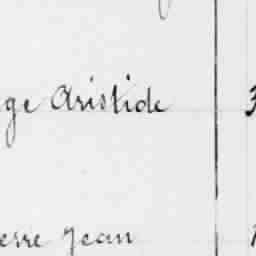 ge Aristide 3
erre Jean